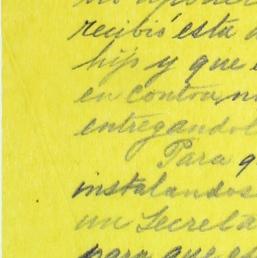 recibió esta
y que
en contra
entregandol
Para q
instalandos
un Secreta
para que es